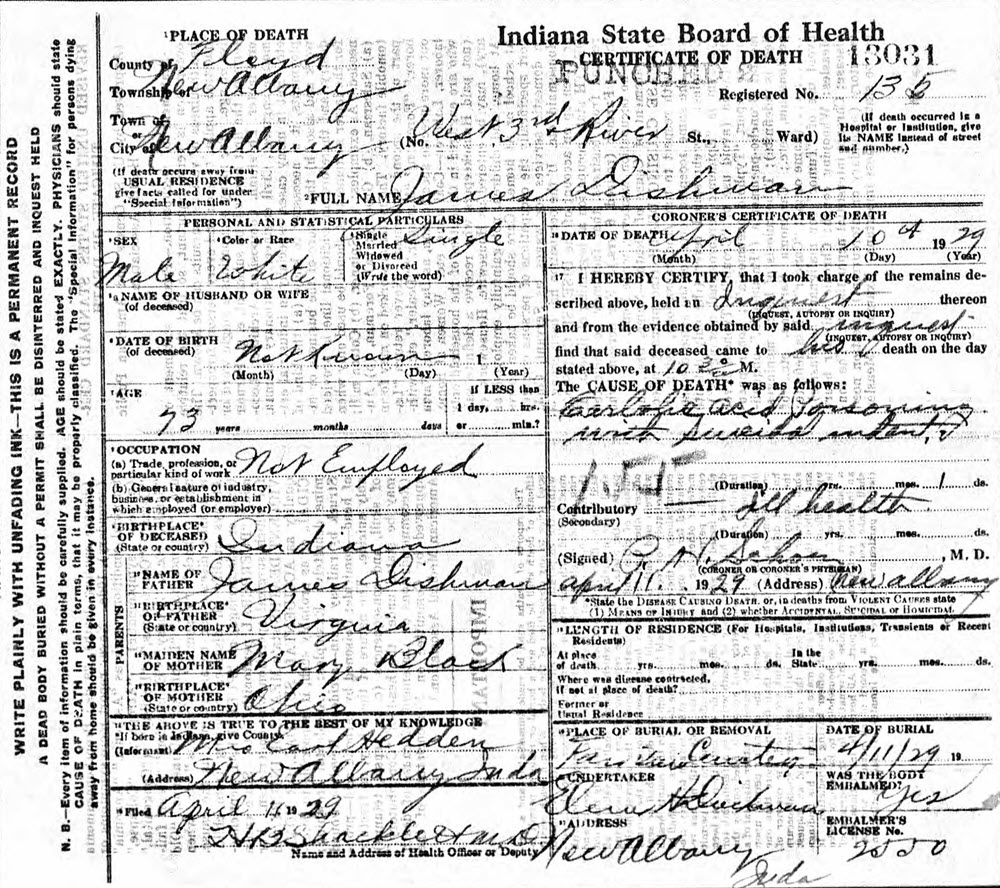 WRITE PLAINLY WITH UNFADING INK—THIS IS A PERMANENT RECORD
A DEAD BODY BURIED WITHOUT A PERMIT SHALL BE DISINTERRED AND INQUEST HELD
N. B.—Every item of information should be carefully supplied. AGE should be stated EXACTLY. PHYSICIANS should state
CAUSE OF DEATH in plain terms, that it may be properly classified. The "Special Information" for persons dying
away from home should be given in every instance.
Indiana State Board of Health
CERTIFICATE OF DEATH
PUNCHED
13031
Registered No. 135
¹PLACE OF DEATH
County of Floyd
Township of New Albany
Town of
or
City of New Albany (No. West 3rd & River St., Ward)
(If death occurred in a
Hospital or Institution, give
its NAME instead of street
and number.)
(If death occurs away from
USUAL RESIDENCE
give facts called for under
"Special Information")
²FULL NAME James Dishman
PERSONAL AND STATISTICAL PARTICULARS
³SEX Male
⁴Color or Race White
⁵Single
Married
Widowed
or Divorced
(Write the word)
Single
⁵ᵃNAME OF HUSBAND OR WIFE
(of deceased)
⁶DATE OF BIRTH
(of deceased) Not Known 1
(Month) (Day) (Year)
⁷AGE
73 years months days
If LESS than
1 day, hrs.
or min.?
⁸OCCUPATION
(a) Trade, profession, or
particular kind of work Not Employed
(b) General nature of industry,
business, or establishment in
which employed (or employer)
⁹BIRTHPLACE
OF DECEASED
(State or country) Indiana
PARENTS
¹⁰NAME OF
FATHER James Dishman
¹¹BIRTHPLACE
OF FATHER
(State or country) Virginia
¹²MAIDEN NAME
OF MOTHER Mary Black
¹³BIRTHPLACE
OF MOTHER
(State or country) Ohio
¹⁴THE ABOVE IS TRUE TO THE BEST OF MY KNOWLEDGE
*If born in Indiana, give County.
(Informant) Mrs Earl Hedden
(Address) New Albany Inda
¹⁵Filed April 11 1929
Name and Address of Health Officer or Deputy
CORONER'S CERTIFICATE OF DEATH
¹⁶DATE OF DEATH April 10th 1929
(Month) (Day) (Year)
¹⁷ I HEREBY CERTIFY, that I took charge of the remains de-
scribed above, held an Inquest thereon
(INQUEST, AUTOPSY OR INQUIRY)
and from the evidence obtained by said inquest
(INQUEST, AUTOPSY OR INQUIRY)
find that said deceased came to his death on the day
stated above, at 10 M.
The CAUSE OF DEATH* was as follows:
Carbolic acid Poisoning
with Suicidal intent
155
(Duration) yrs. mos. 1 ds.
Contributory Ill health
(Secondary)
(Duration) yrs. mos. ds.
(Signed) M. D.
(CORONER OR CORONER'S PHYSICIAN)
April 11. 1929 (Address) New Albany
*State the DISEASE CAUSING DEATH, or, in deaths from VIOLENT CAUSES state
(1) MEANS OF INJURY and (2) whether ACCIDENTAL, SUICIDAL OR HOMICIDAL.
¹⁸LENGTH OF RESIDENCE (For Hospitals, Institutions, Transients or Recent
Residents)
At place
of death yrs. mos. ds.
In the
State yrs. mos. ds.
Where was disease contracted,
if not at place of death?
Former or
Usual Residence
¹⁹PLACE OF BURIAL OR REMOVAL
DATE OF BURIAL
4/11/29 19
²⁰UNDERTAKER
Dishman
WAS THE BODY
EMBALMED? Yes
²¹ADDRESS
New Albany
Inda
EMBALMER'S
LICENSE No.
2550